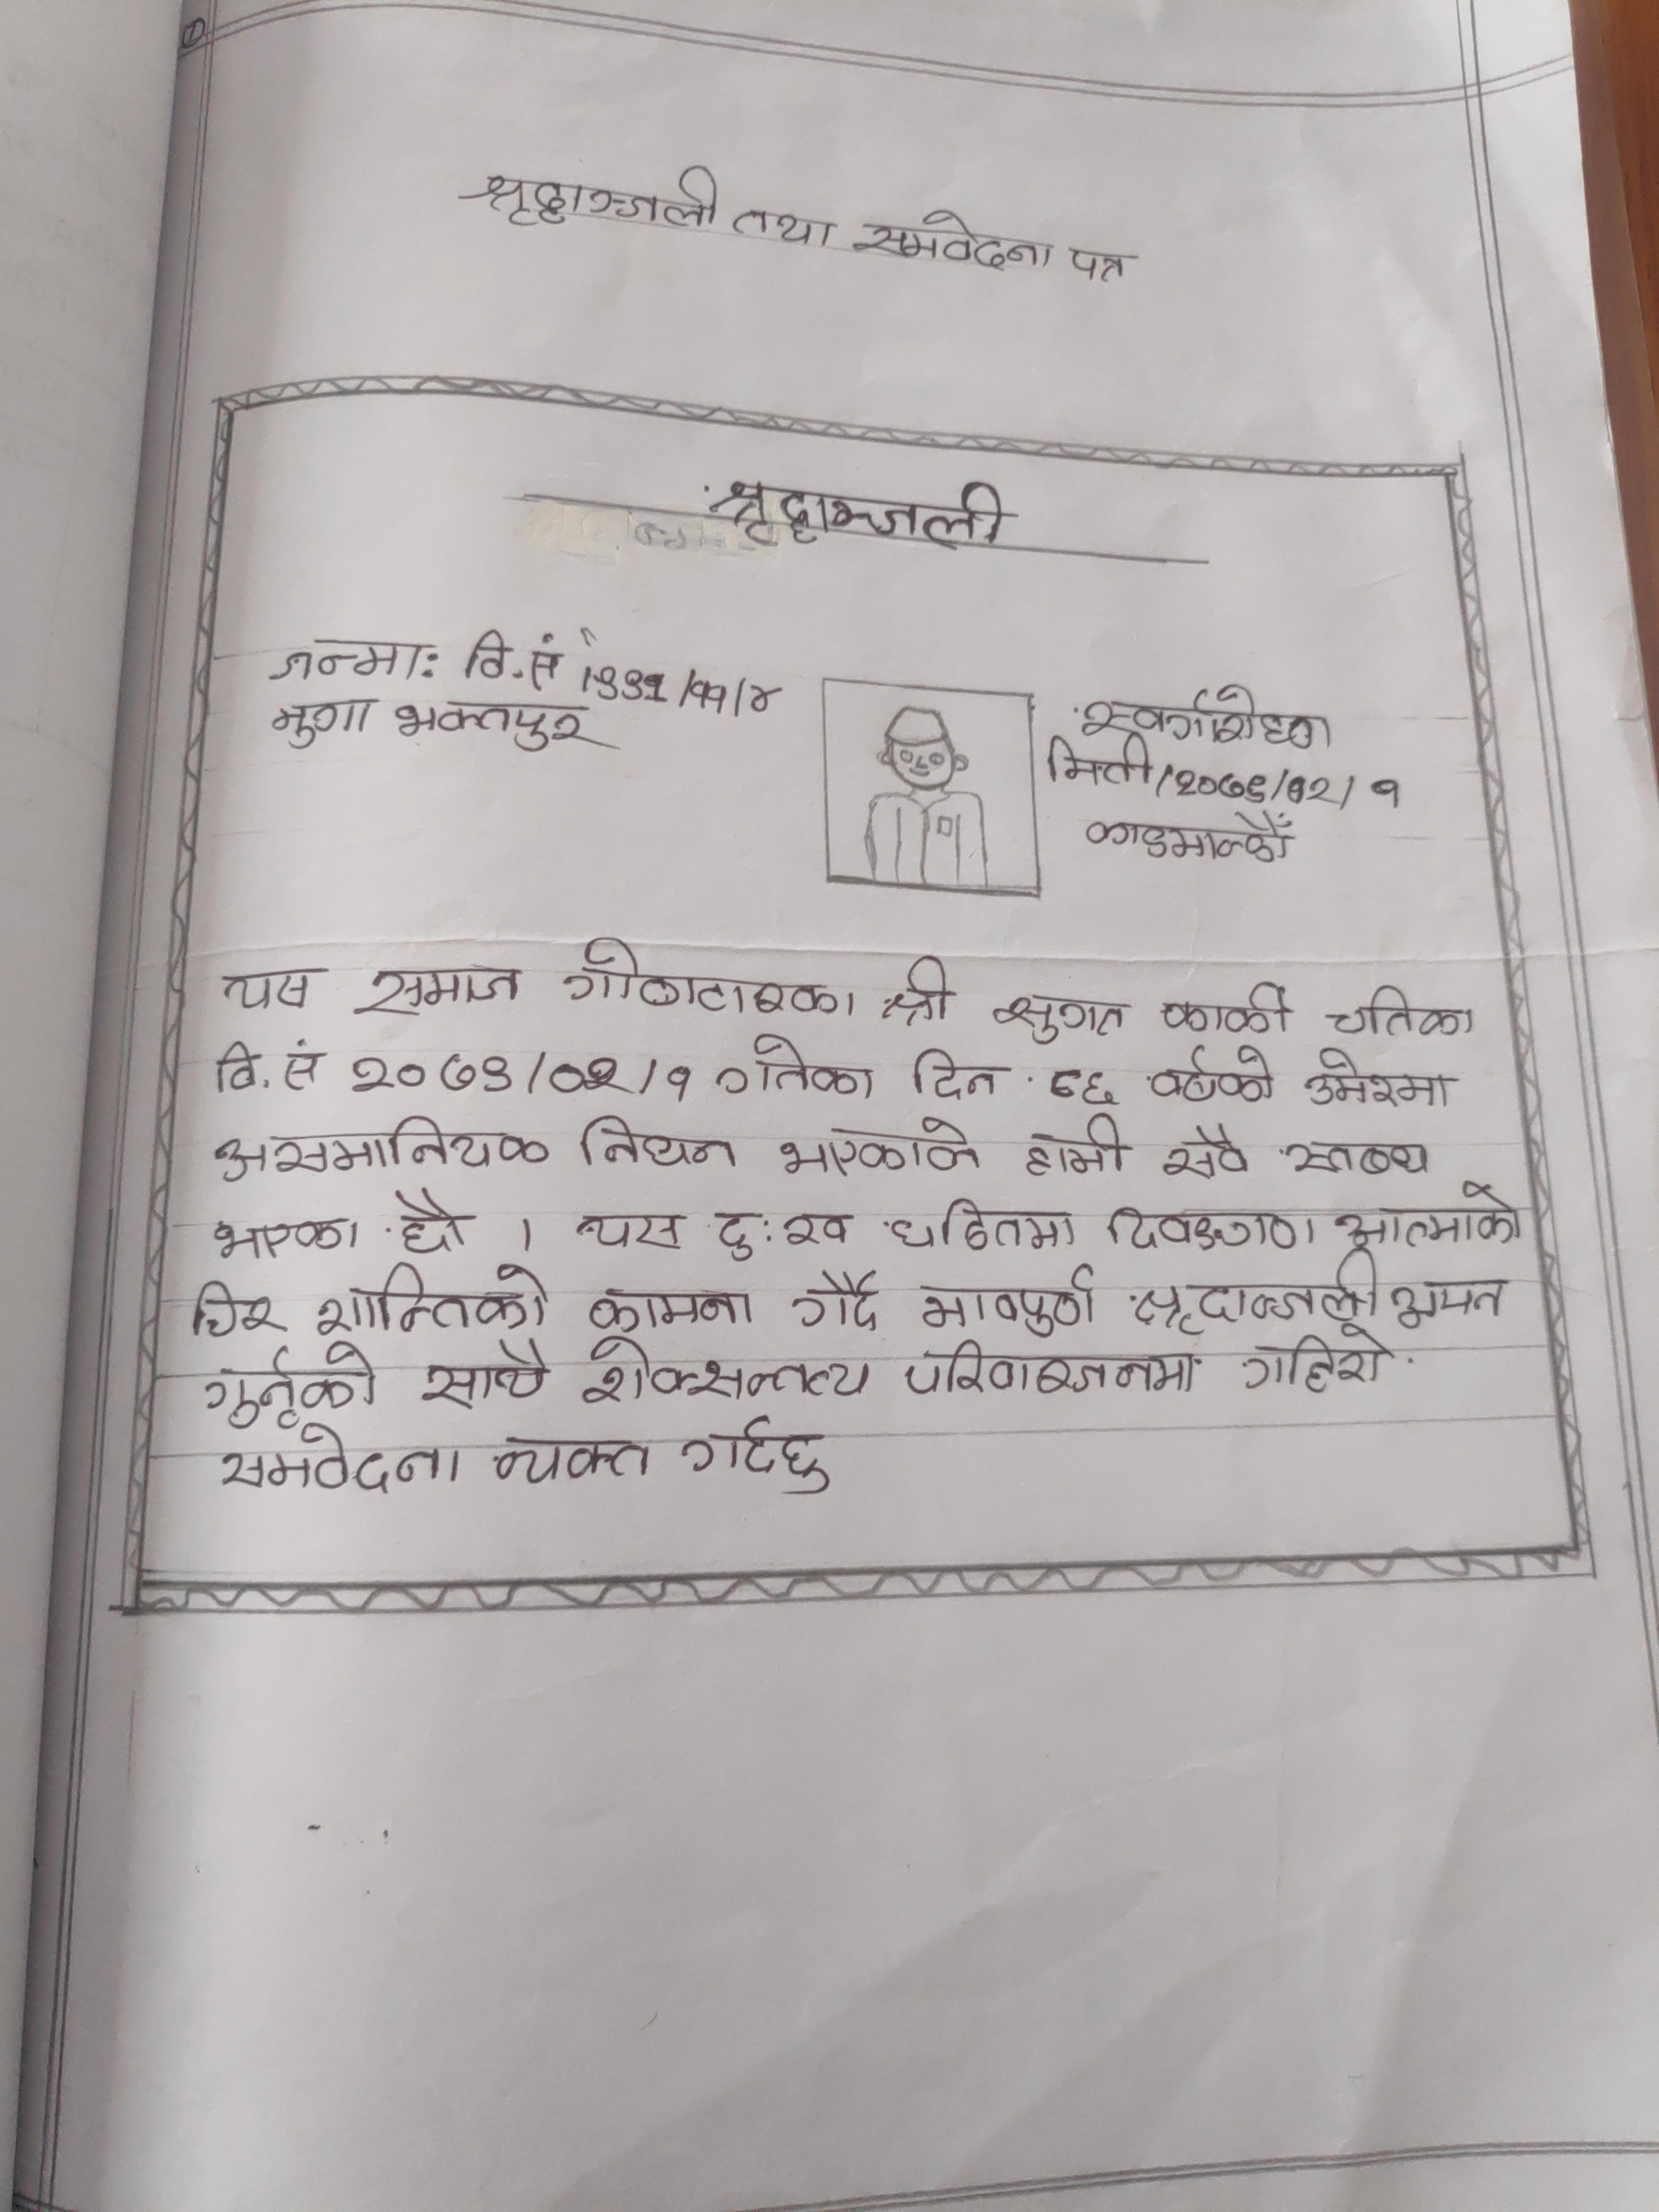 श्रृद्धाञ्जली तथा समवेदना पत्र
श्रृद्धाञ्जली
जन्माः वि.सं १९९१/११/४
मुगा भक्तपुर
स्वर्गारोहण
मिती/२०७९/१२/१
काडमान्डौँ
यस समाज गोठाटारका श्री सुगत कार्की
वि.सं २०७९/०२/१ गतेका दिन ८६ वर्षको उमेरमा
असमानियक निधन भएकाले हामी सवै स्तब्ध
भएका छौ । यस दुःख घटितमा आत्माको
चिर शान्तिको कामना गर्दै भावपुर्ण श्रृदान्जली अपन
गुर्नृको साथै शोक्सन्तत्प परिवारजनमा गहिरो
समवेदना व्यक्त गर्दछु